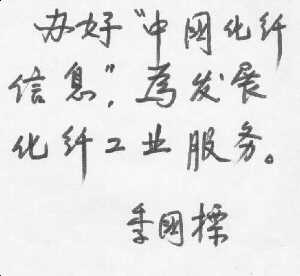 办好“中国化纤
信息”，為发展
化纤工业服务。
季国标